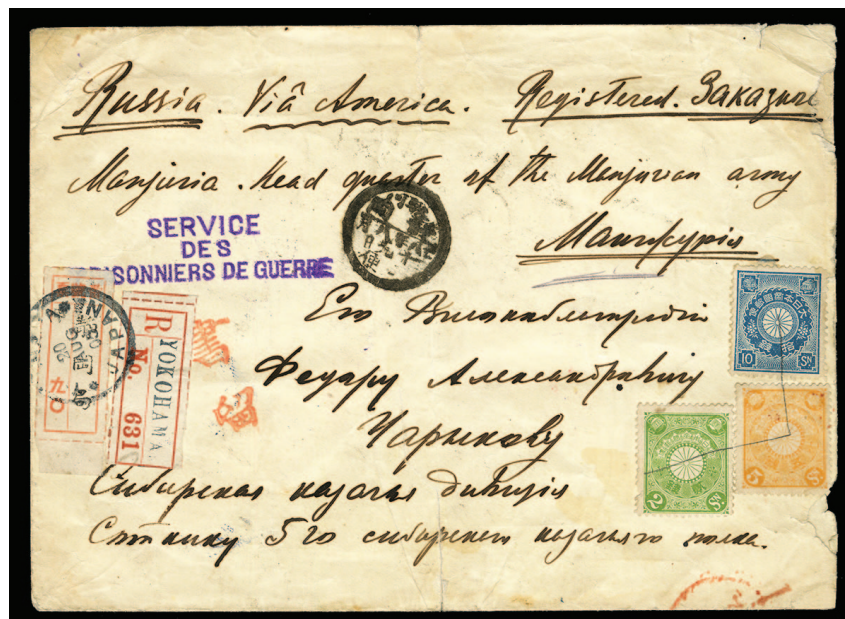 Russia. Viâ America. Registered. Заказное
Manjuria. Head quarter of the Manjurian army
Манчжурія
SERVICE
DES
PRISONNIERS DE GUERRE
Его Высокоблагородію
Федару Александравичу
Чарыкову
Сибирская казачья дивизія
Сотнику 5го сибирскаго казачьяго полка.
R
YOKOHAMA
No. 631
九〇
JAPAN
20
AUG
便
大日本帝國郵便
10 Sn
5 Sn
2 Sn